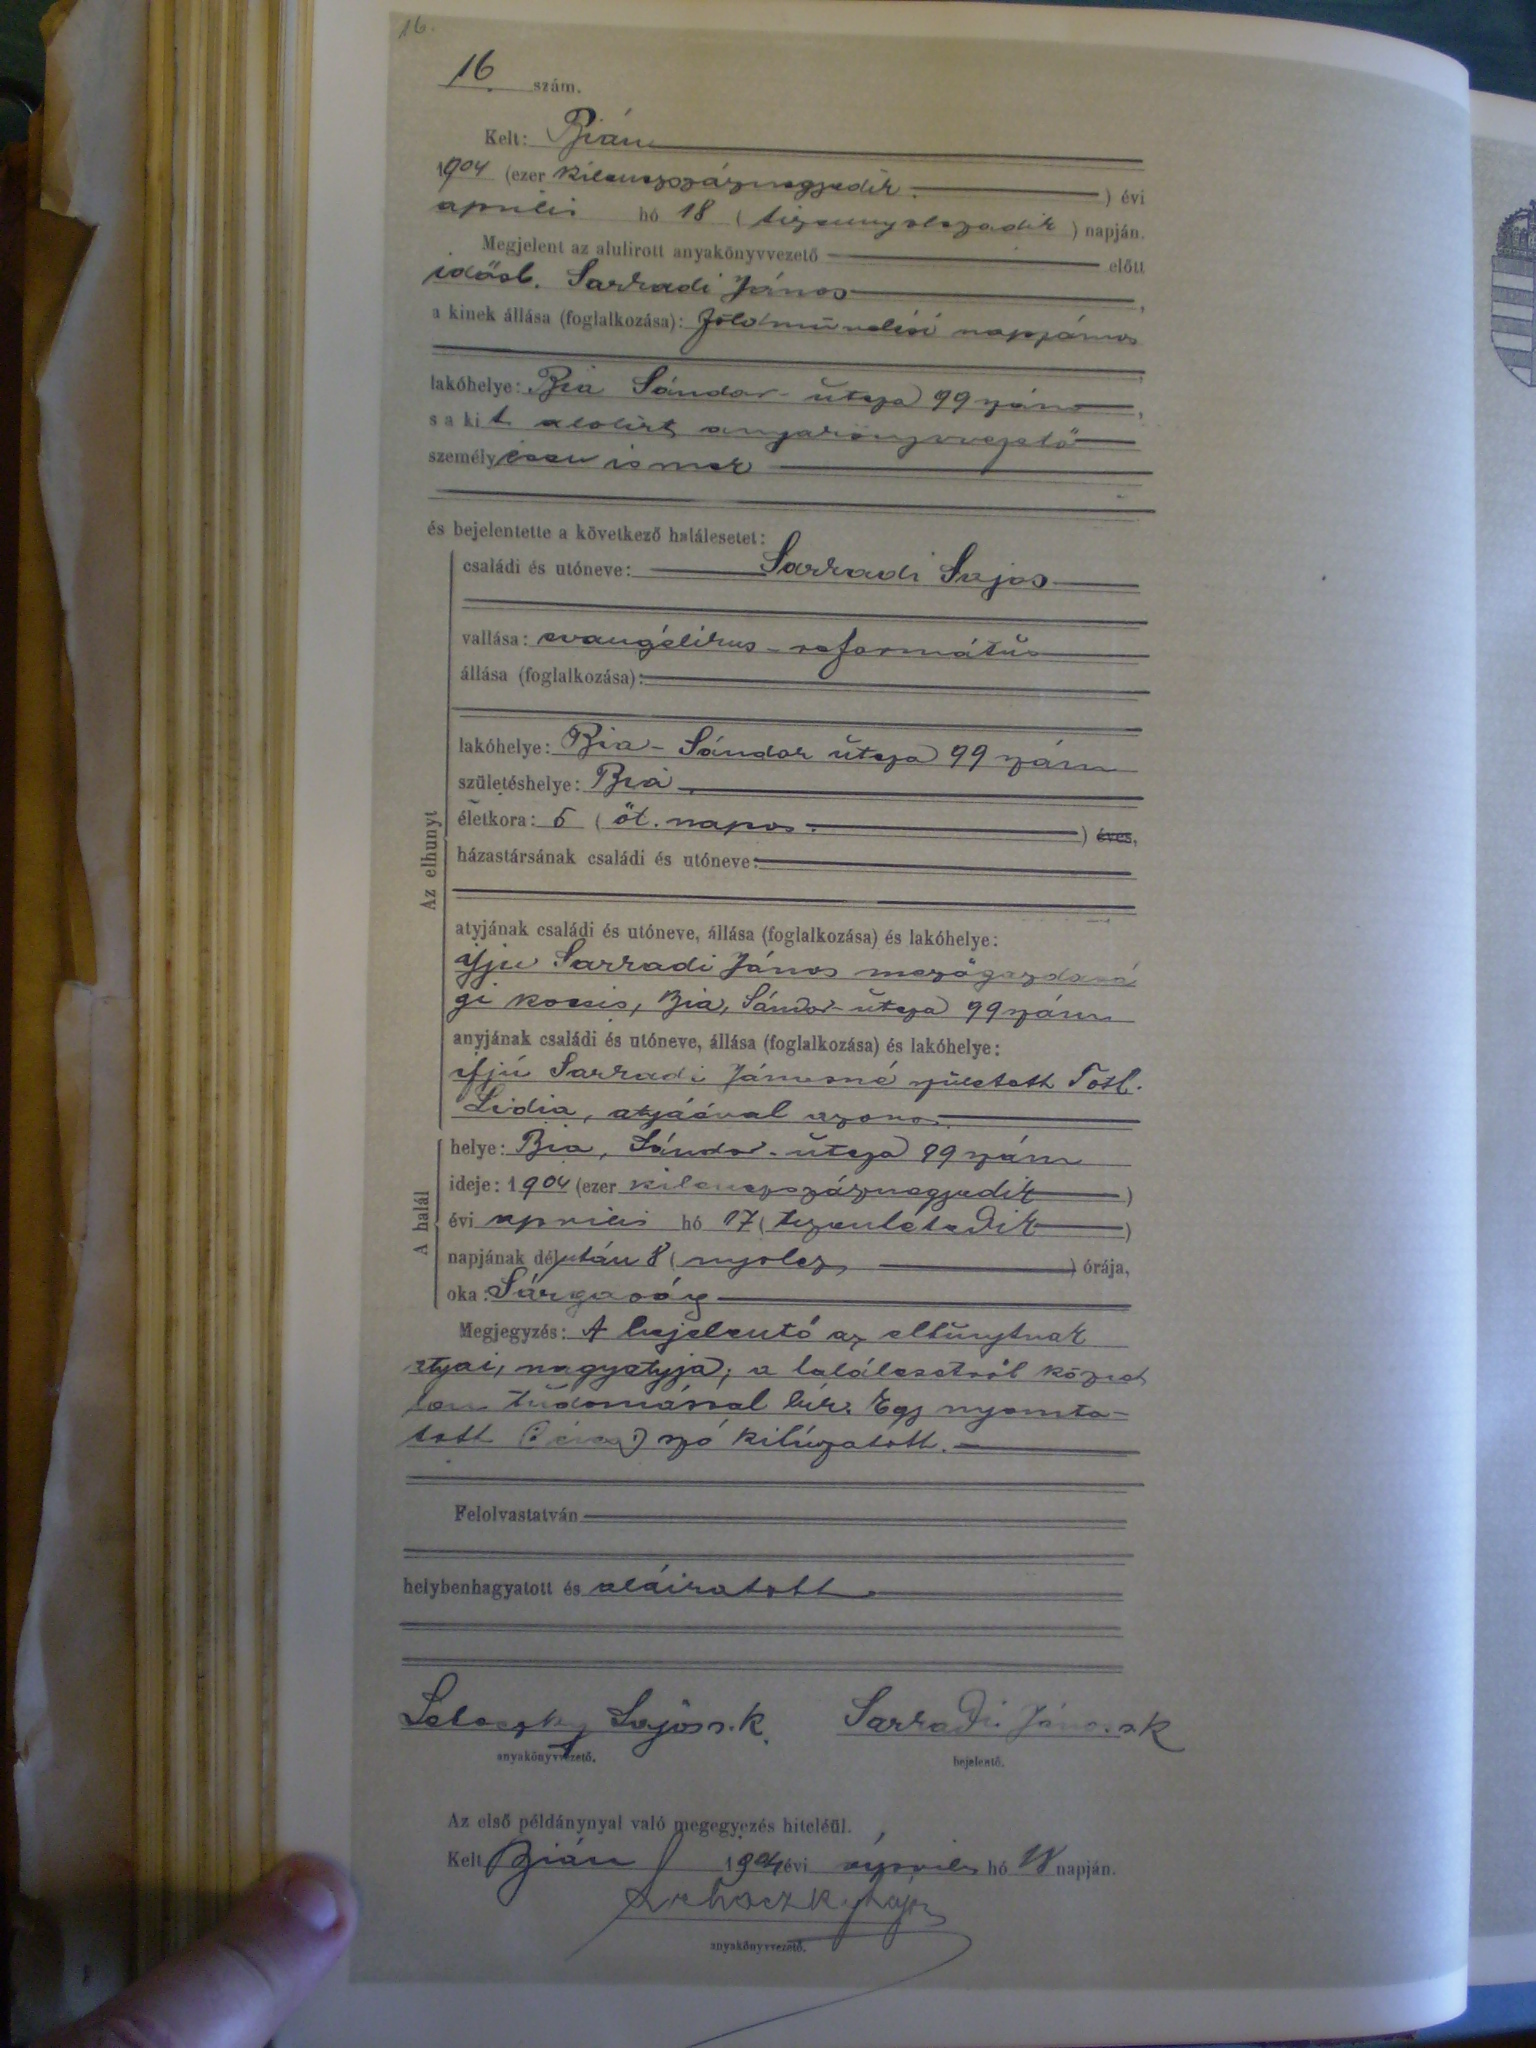 16.
16 szám.
Kelt: Bián
1904 (ezer kilenczszáznegyedik ) évi
aprilis hó 18 ( tizennyolczadik ) napján.
Megjelent az alulirott anyakönyvvezető előtt
idősb. Sarradi János ,
a kinek állása (foglalkozása): földmüvelési napszámos
lakóhelye: Bia Sándor-utcza 99 szám ,
s a kit alolirt anyakönyvvezető
személyesen ismer
és bejelentette a következő halálesetet:
Az elhunyt
családi és utóneve: Sarradi Lajos
vallása: evangélikus-református
állása (foglalkozása):
lakóhelye: Bia - Sándor utcza 99 szám
születéshelye: Bia
életkora: 5 ( öt. napos. ) éves,
házastársának családi és utóneve:
atyjának családi és utóneve, állása (foglalkozása) és lakóhelye:
ifju Sarradi János mezőgazdasá
gi kocsis, Bia, Sándor-utcza 99 szám
anyjának családi és utóneve, állása (foglalkozása) és lakóhelye:
ifjú Sarradi Jánosné született
Lidia, atyjáéval azonos.
A halál
helye: Bia, Sándor-utcza 99 szám
ideje: 1904 (ezer kilenczszáznegyedik )
évi aprilis hó 17 ( tizenhetedik )
napjának délután 8 ( nyolcz ) órája,
oka: Sárgaság
Megjegyzés: A bejelentő az elhunytnak
atyai, nagyatyja; a halálesetről közvet
len tudomással bir. Egy nyomta-
tott (: éves :) szó kihúzatott.
Felolvastatván
helybenhagyatott és aláiratott
Lajos s.k. Sarradi János sk
anyakönyvvezető. bejelentő.
Az első példánynyal való megegyezés hiteléül.
Kelt Bián 1904 évi április hó 18 napján.
Lajos
anyakönyvvezető.